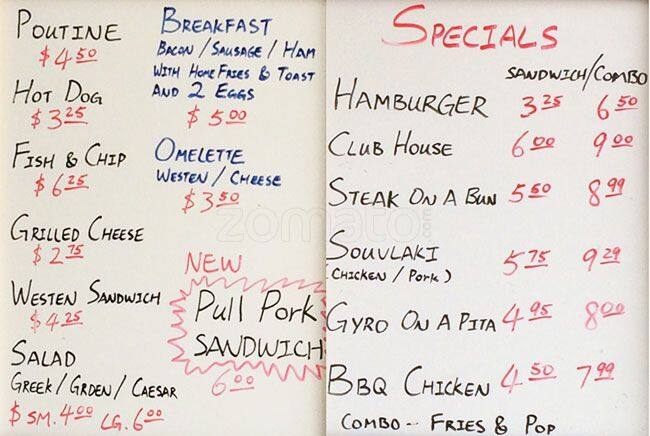 POUTINE
$ 4.50
HOT DOG
$ 3.25
FISH & CHIP
$ 6.25
GRILLED CHEESE
$ 2.75
WESTEN SANDWICH
$ 4.25
SALAD
GREEK / GRDEN / CAESAR
$ SM. 4.00 LG. 6.00
BREAKFAST
BACON / SAUSAGE / HAM
WITH HOME FRIES & TOAST
AND 2 EGGS
$ 5.00
OMELETTE
WESTEN / CHEESE
$ 3.50
NEW
Pull Pork
SANDWICH
6.00
SPECIALS
SANDWICH/COMBO
HAMBURGER 3.25 6.50
CLUB HOUSE 6.00 9.00
STEAK ON A BUN 5.50 8.99
SOUVLAKI 5.75 9.29
(CHICKEN / PORK)
GYRO ON A PITA 4.95 8.00
BBQ CHICKEN 4.50 7.99
COMBO -- FRIES & POP
zomato.com